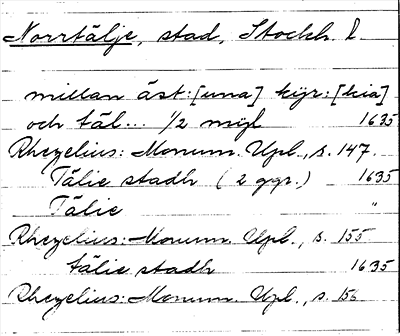 Norrtälje, stad, Stockh. l.
millan äst:[una] kijr:[kia]
och täl... 1/2 mijl 1635
Rhezelius: Monum. Upl., s. 147.
Tälie stadh (2 ggr.) 1635
Tälie "
Rhezelius: Monum. Upl., s. 155
tälie stadh 1635
Rhezelius: Monum. Upl., s. 156